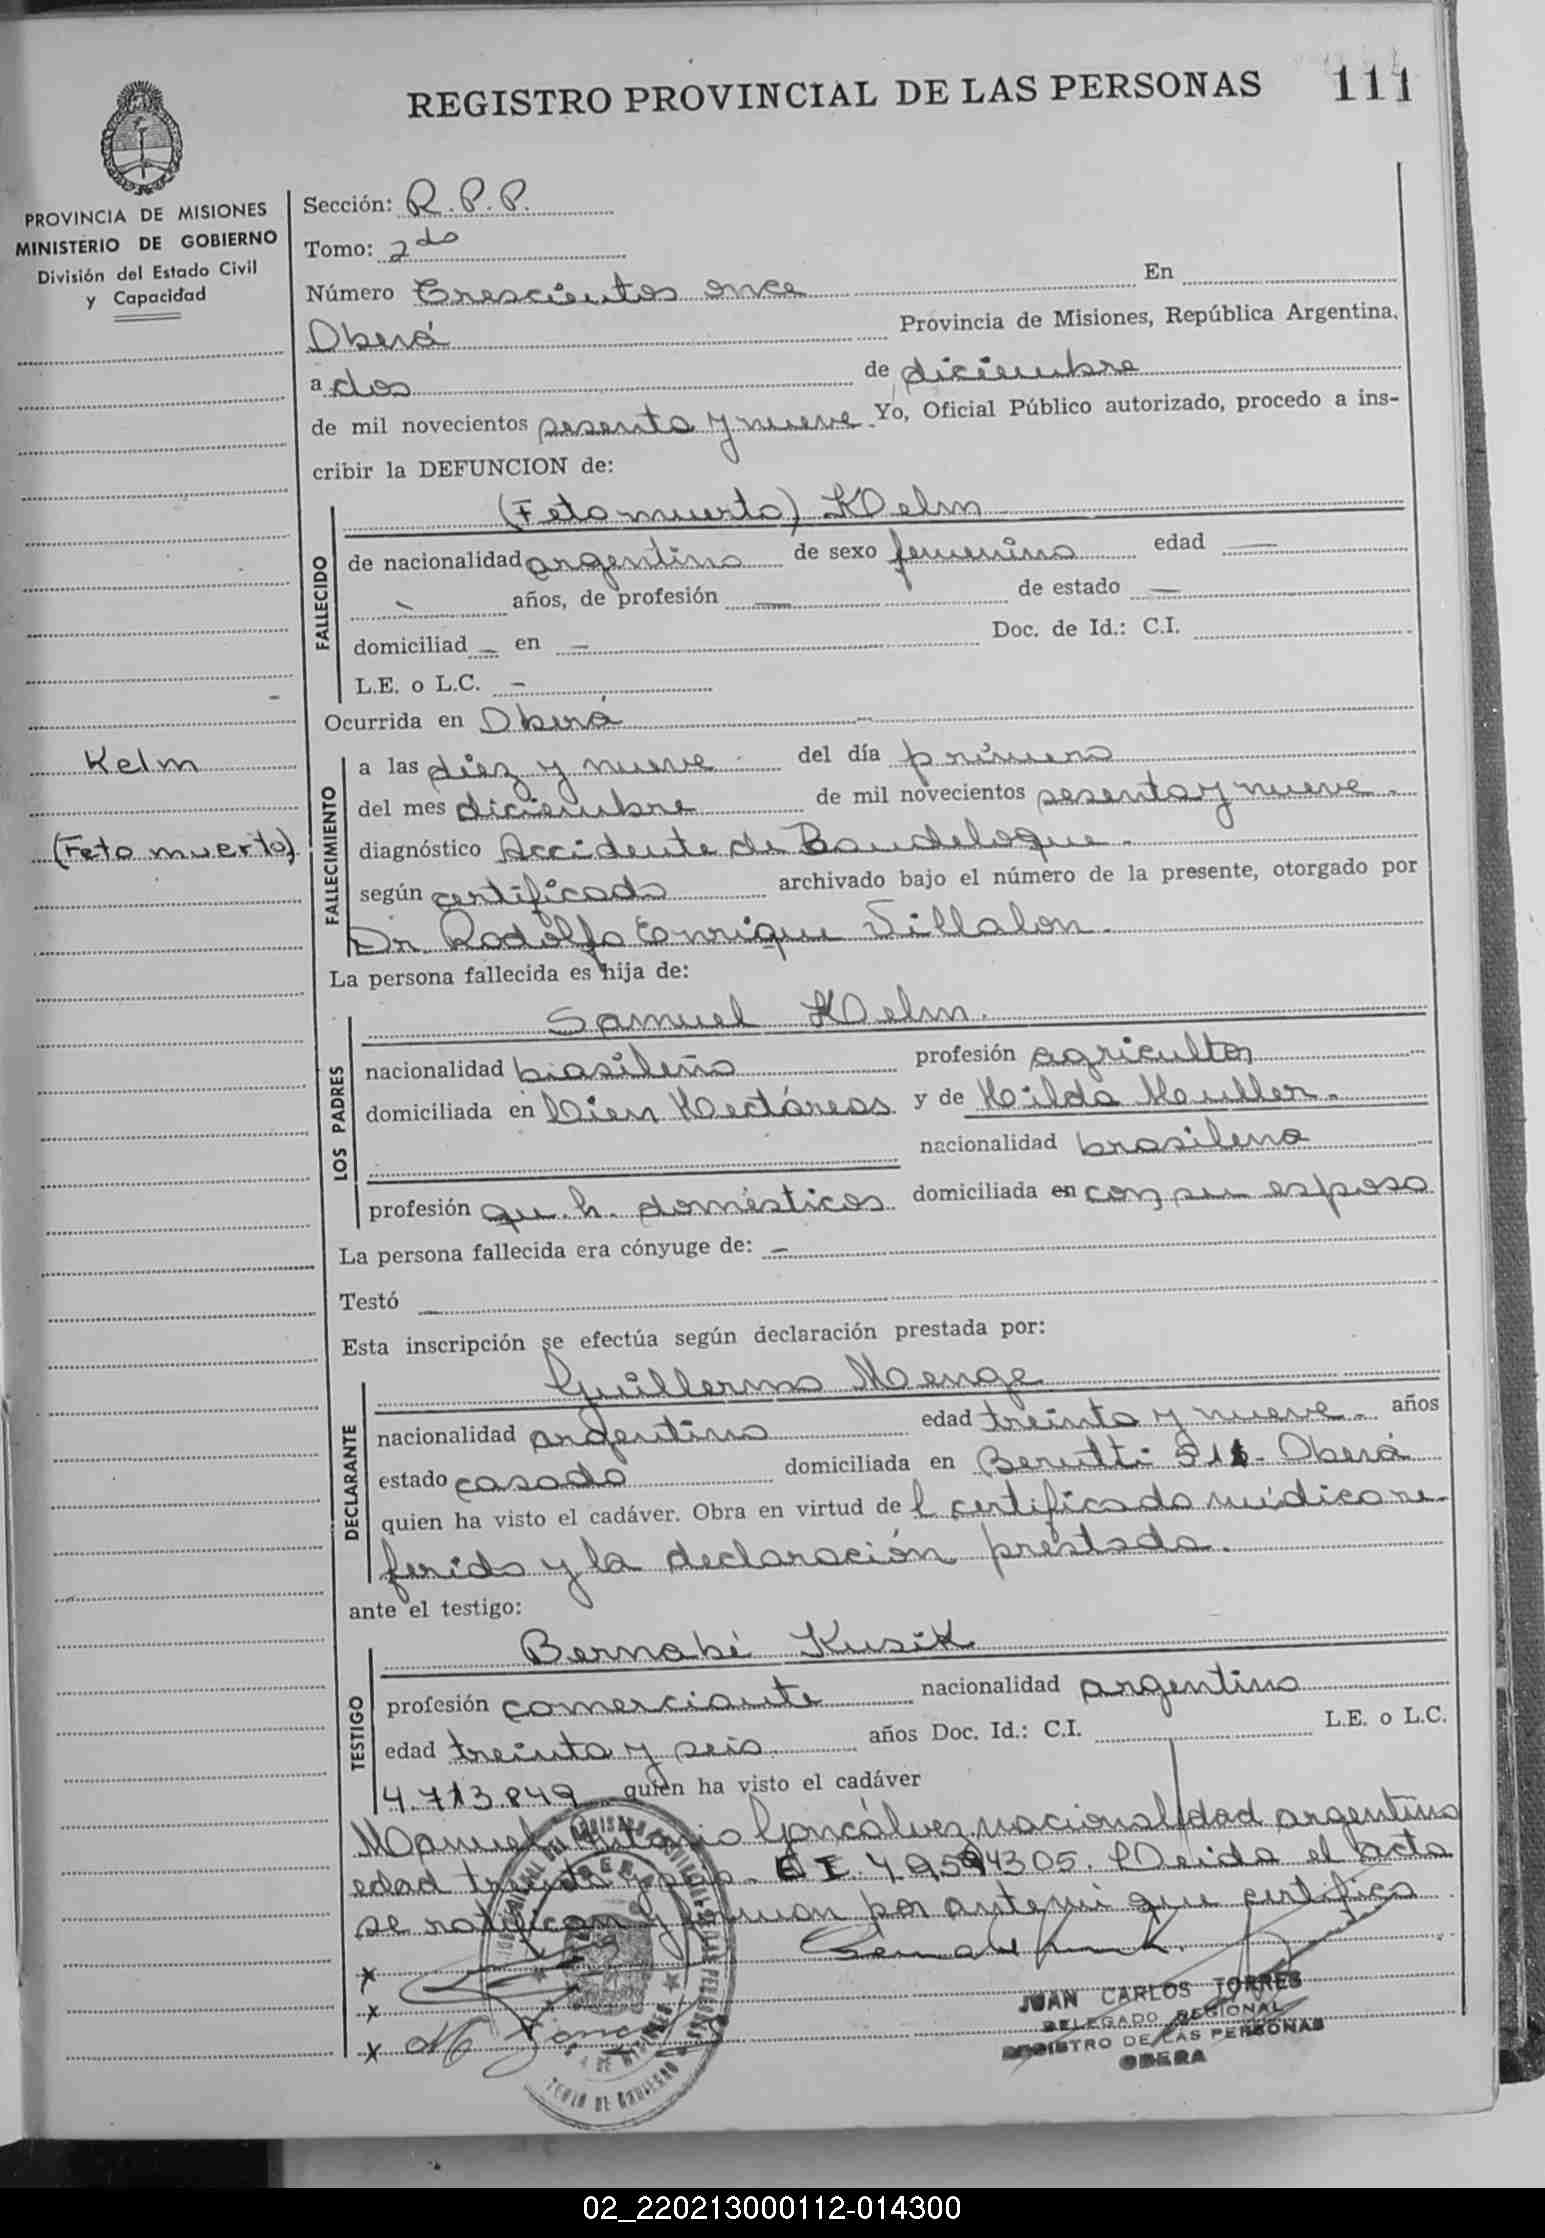 REGISTRO PROVINCIAL DE LAS PERSONAS 111
PROVINCIA DE MISIONES
MINISTERIO DE GOBIERNO
División del Estado Civil
y Capacidad
Sección: R.P.P.
Tomo: 2do
Número Trescientos once En
Oberá Provincia de Misiones, República Argentina,
a dos de diciembre
de mil novecientos sesenta y nueve. Yo, Oficial Público autorizado, procedo a ins-
cribir la DEFUNCION de:
(Feto muerto) Kelm
FALLECIDO
de nacionalidad argentina de sexo femenino edad —
— años, de profesión — de estado —
domiciliad — en — Doc. de Id.: C.I.
L.E. o L.C. —
Ocurrida en Oberá
Kelm
(Feto muerto)
FALLECIMIENTO
a las diez y nueve - del día primero
del mes diciembre de mil novecientos sesenta y nueve.
diagnóstico Accidente de Baudeloque.
según certificado archivado bajo el número de la presente, otorgado por
Dr. Rodolfo Enrique Villalon.
La persona fallecida es hija de:
LOS PADRES
Samuel Kelm.
nacionalidad brasileño profesión agricultor
domiciliada en Cien Hectáreas y de Hilda Muller.
nacionalidad brasilena
profesión qu. h. domésticos domiciliada en con su esposo
La persona fallecida era cónyuge de: —
Testó —
Esta inscripción se efectúa según declaración prestada por:
DECLARANTE
Guillermo Menge
nacionalidad argentino edad treinta y nueve. años
estado casado domiciliada en Berutti Oberá
quien ha visto el cadáver. Obra en virtud de l certificado médico re-
ferido y la declaración prestada.
ante el testigo:
TESTIGO
Bernabé Kusik
profesión comerciante nacionalidad argentino
edad treinta y seis años Doc. Id.: C.I. L.E. o L.C.
4.713.849 quien ha visto el cadáver
Manuel Antonio Goncálvez nacionalidad argentino
edad treinta y Leida el acta
se ratifican y firman por ante mi que certifico
x
x
x
JUAN CARLOS TORRES
DELEGADO REGIONAL
REGISTRO DE LAS PERSONAS
OBERA
02_220213000112-014300